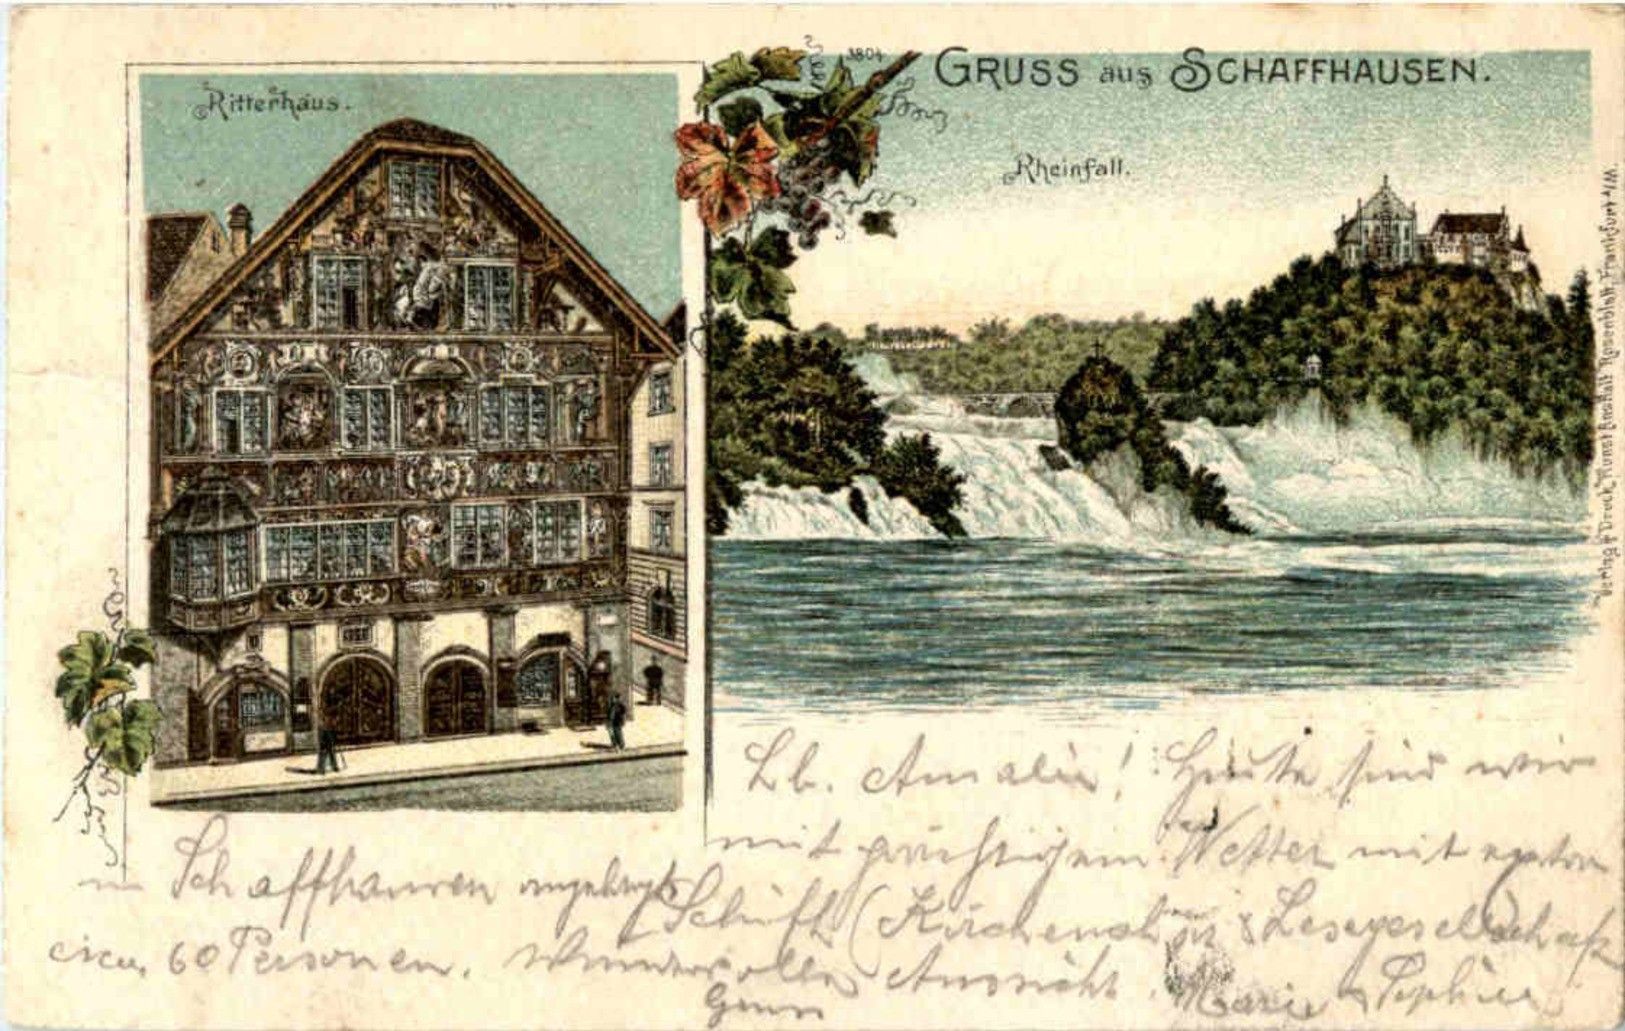 GRUSS aus SCHAFFHAUSEN.
1804
Ritterhaus.
Rheinfall.
Verlag & Druck, Kunstanstalt Rosenblatt, Frankfurt a/M.
Lb. Amalie! Heute sind wir
mit prächtigem Wetter mit extra
Schiff (Kirchenchor & Lesegesellschaft
in Schaffhausen angelangt
circa 60 Personen. Wundervolle Aussicht.
Marie & Sophie